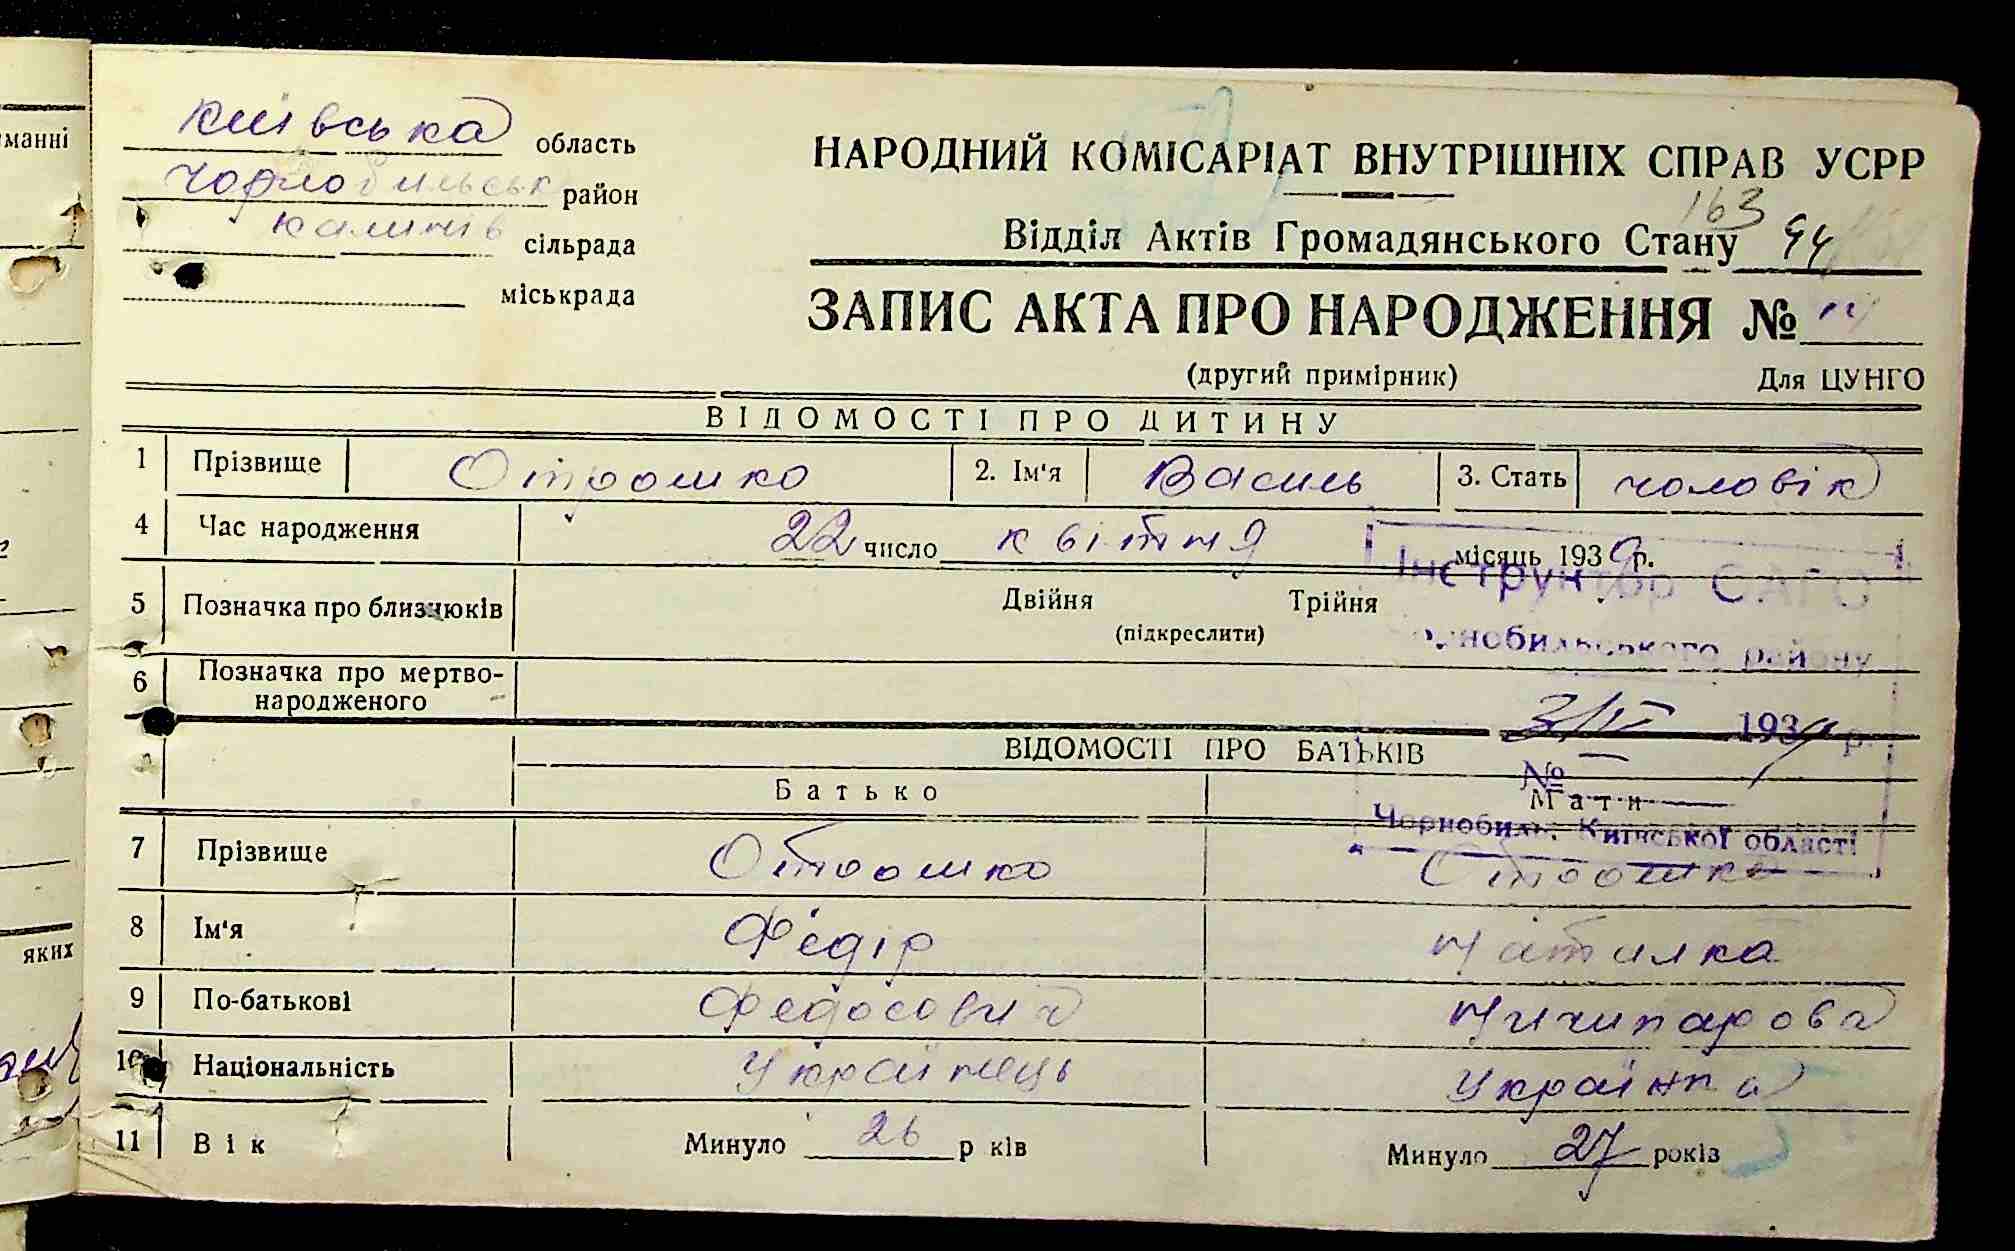 Київська область
Чорнобильськ район
калинів сільрада
міськрада
НАРОДНИЙ КОМІСАРІАТ ВНУТРІШНІХ СПРАВ УСРР
163
Відділ Актів Громадянського Стану 94
ЗАПИС АКТА ПРО НАРОДЖЕННЯ №
(другий примірник) Для ЦУНГО
ВІДОМОСТІ ПРО ДИТИНУ
1 Прізвище Отрошко 2. Ім'я Василь 3. Стать чоловік
4 Час народження 22 число квітня місяць 1939 р.
Інструктор САГС
5 Позначка про близнюків Двійня Трійня
(підкреслити)
Чорнобильського району
6 Позначка про мертво-
народженого
3/ІV 1939 р.
ВІДОМОСТІ ПРО БАТЬКІВ
№
Батько Мати
Чорнобиль, Київської області
7 Прізвище Отрошко Отрошко
8 Ім'я Федір Натилка
9 По-батькові Федосович Ничипарова
10 Національність Українець Українка
11 Вік Минуло 26 р ків Минуло 27 років
манні
яких